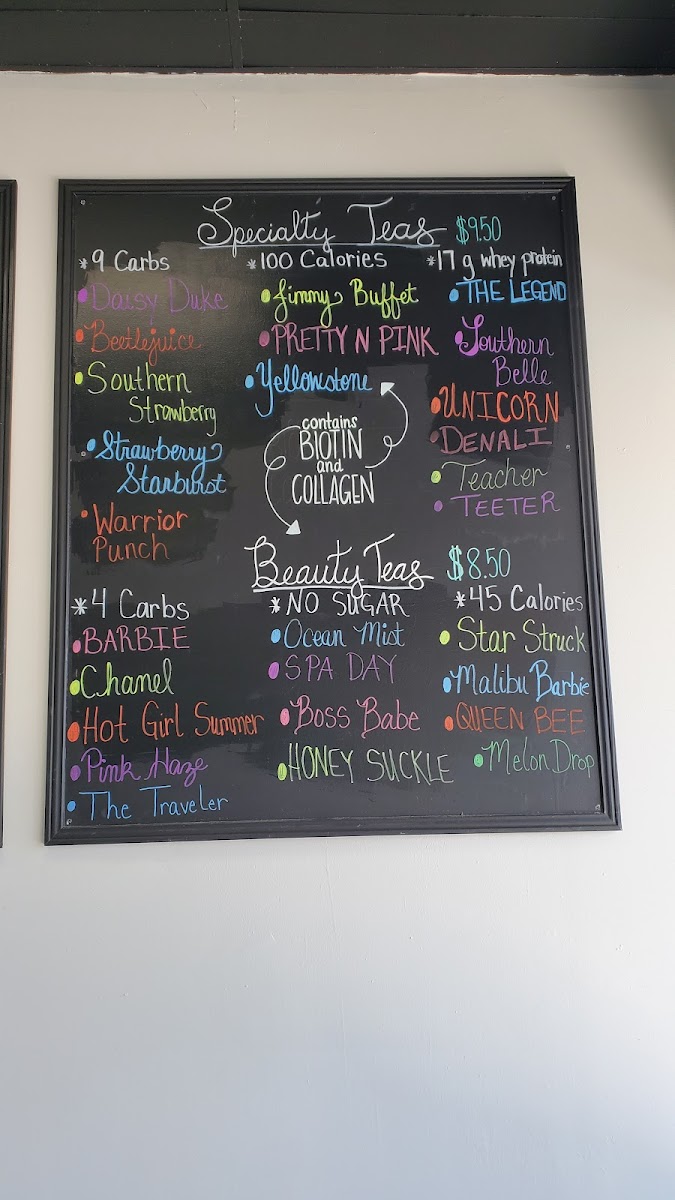 Specialty Teas $9.50
*9 Carbs *100 Calories *17 g whey protein
•Daisy Duke
•Beetlejuice
•Southern
Strawberry
•Strawberry
Starburst
•Warrior
Punch
•Jimmy Buffet
•PRETTY N PINK
•Yellowstone
•THE LEGEND
•Southern
Belle
•UNICORN
•DENALI
•Teacher
•TEETER
contains
BIOTIN
and
COLLAGEN
Beauty Teas $8.50
*4 Carbs *NO SUGAR *45 Calories
•BARBIE
•Chanel
•Hot Girl Summer
•Pink Haze
•The Traveler
•Ocean Mist
•SPA DAY
•Boss Babe
•HONEY SUCKLE
•Star Struck
•Malibu Barbie
•QUEEN BEE
•Melon Drop